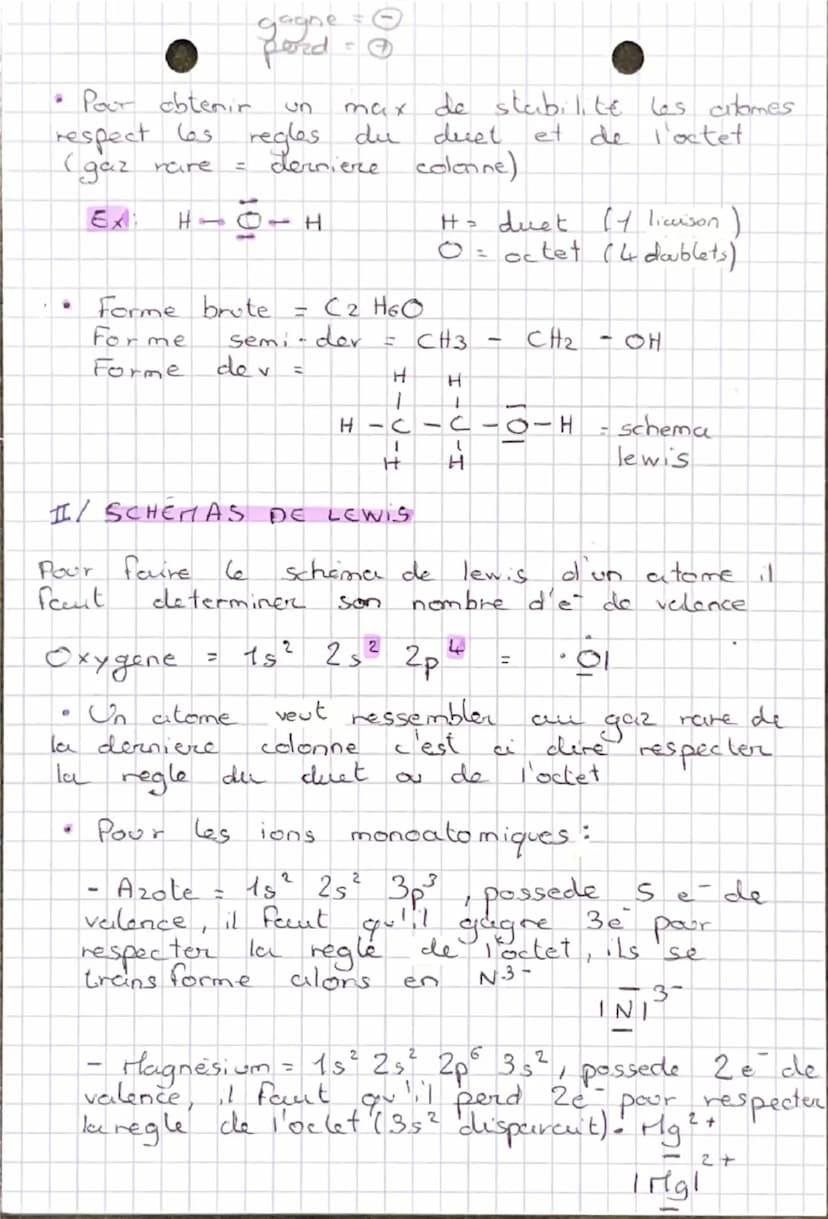 gagne = ⊖
perd = ⊕
• Pour obtenir un max de stabilité les atomes
respect les regles du duet et de l'octet
(gaz rare = derniere colonne)
Ex: H - O - H H = duet (1 liaison)
O = octet (4 doublets)
• Forme brute = C2 H6O
Forme semi-dev = CH3 - CH2 - OH
Forme dev =
H H
H - C - C - O - H = schema
H H lewis
II/ SCHÉMAS DE LEWIS
Pour faire le schéma de lewis d'un atome il
faut determiner son nombre d'e⁻ de valence
Oxygene = 1s² 2s² 2p⁴ = ·O|
• Un atome veut ressembler au gaz rare de
la derniere colonne c'est a dire respecter
la regle du duet ou de l'octet
• Pour les ions monoatomiques :
- Azote = 1s² 2s² 3p³, possede 5 e⁻ de
valence, il faut qu'il gagne 3e⁻ pour
respecter la regle de l'octet, ils se
transforme alors en N³⁻
|N|³⁻
- Magnésium = 1s² 2s² 2p⁶ 3s², possede 2e⁻ de
valence, il faut qu'il perd 2e⁻ pour respecter
la regle de l'octet (3s² disparait). Mg²⁺
|Mg|²⁺